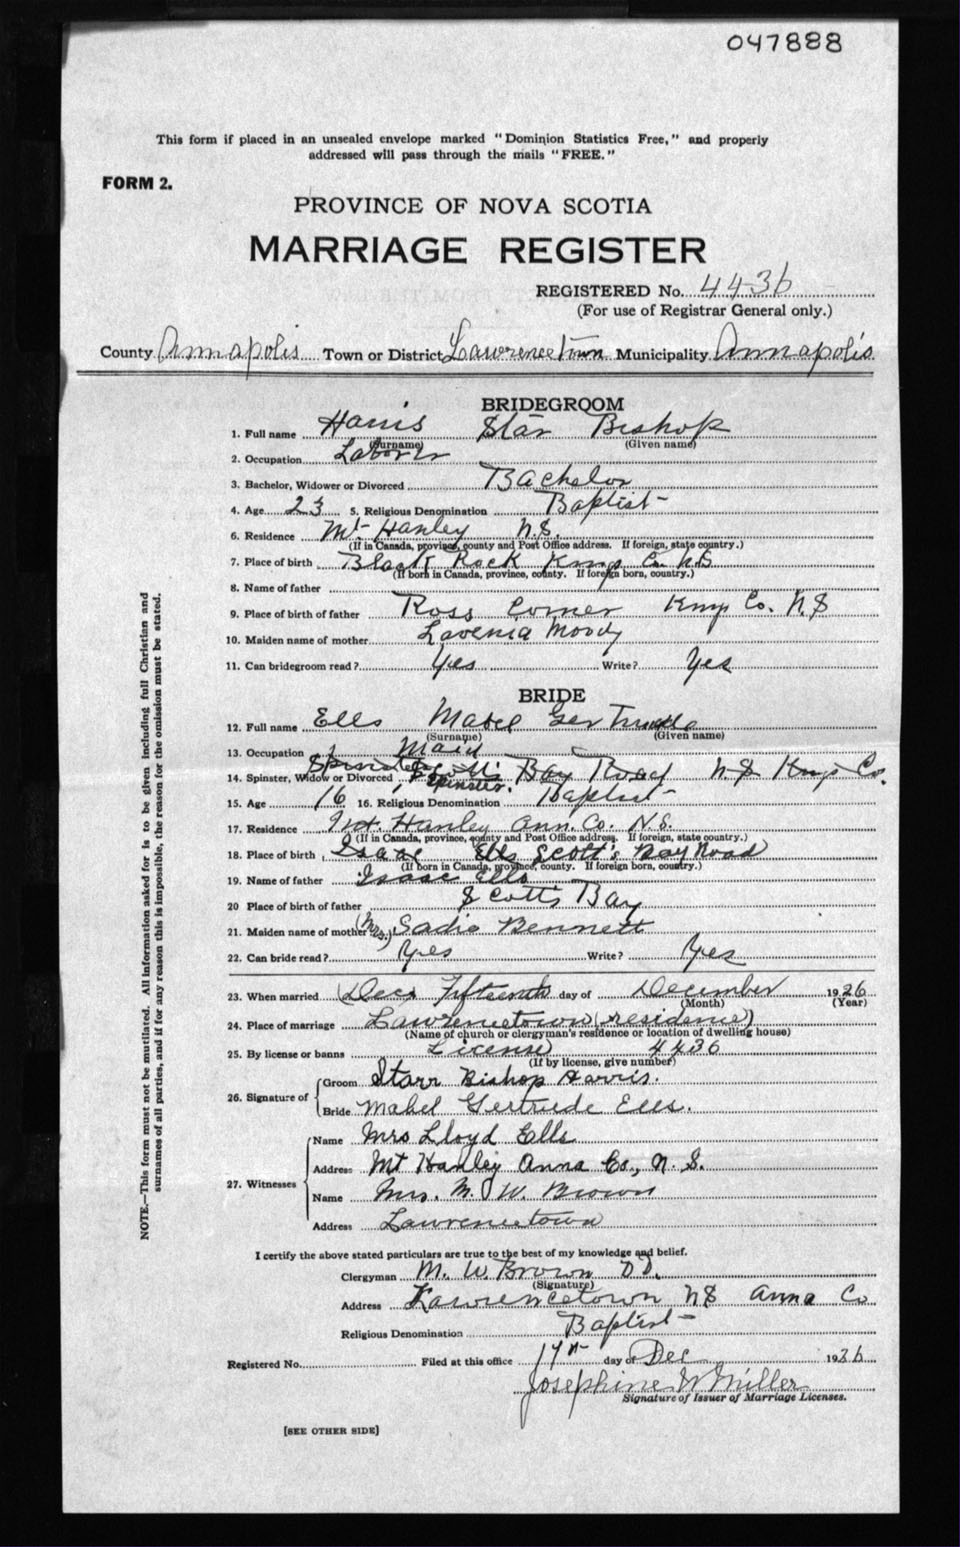 047888
This form if placed in an unsealed envelope marked "Dominion Statistics Free," and properly
addressed will pass through the mails "FREE."
FORM 2.
PROVINCE OF NOVA SCOTIA
MARRIAGE REGISTER
REGISTERED No. 4436
(For use of Registrar General only.)
County Annapolis Town or District Lawrencetown Municipality Annapolis
BRIDEGROOM
1. Full name Harris Star Bishop
(Surname) (Given name)
2. Occupation Laborer
3. Bachelor, Widower or Divorced Bachelor
4. Age 23 5. Religious Denomination Baptist
6. Residence Mt Hanley N.S.
(If in Canada, province, county and Post Office address. If foreign, state country.)
7. Place of birth Black Rock Kings Co. N.S
(If born in Canada, province, county. If foreign born, country.)
8. Name of father
9. Place of birth of father Ross Corner Kings Co. N.S
10. Maiden name of mother Lavenia Moody
11. Can bridegroom read? Yes Write? Yes
BRIDE
12. Full name Ells Mabel Gertrude
(Surname) (Given name)
13. Occupation Maid
14. Spinster, Widow or Divorced Spinster Scotts Bay Road N.S Kings Co.
Spinster.
15. Age 16 16. Religious Denomination Baptist
17. Residence Mt. Hanley Ann. Co. N.S.
(If in Canada, province, county and Post Office address. If foreign, state country.)
18. Place of birth Isaac Ells Scott's Bay Road
(If born in Canada, province, county. If foreign born, country.)
19. Name of father Isaac Ells
20 Place of birth of father Scotts Bay
21. Maiden name of mother (Mrs.) Sadie Bennett
22. Can bride read? Yes Write? Yes
23. When married Dec Fifteenth day of December 1926
(Month) (Year)
24. Place of marriage Lawrencetown (residence)
(Name of church or clergyman's residence or location of dwelling house)
25. By license or banns License 4436
(If by license, give number)
26. Signature of
Groom Starr Bishop Harris.
Bride Mabel Gertrude Ells.
27. Witnesses
Name Mrs Lloyd Ells
Address Mt Hanley Anna Co., N. S.
Name Mrs. M. W. Brown
Address Lawrencetown
I certify the above stated particulars are true to the best of my knowledge and belief.
Clergyman M. W. Brown D D.
(Signature)
Address Lawrencetown NS Anna Co
Religious Denomination Baptist
Registered No. Filed at this office 17th day of Dec 1936
Josephine W Miller
Signature of Issuer of Marriage Licenses.
[SEE OTHER SIDE]
NOTE.—This form must not be mutilated. All information asked for is to be given including full Christian and
surnames of all parties, and if for any reason this is impossible, the reason for the omission must be stated.